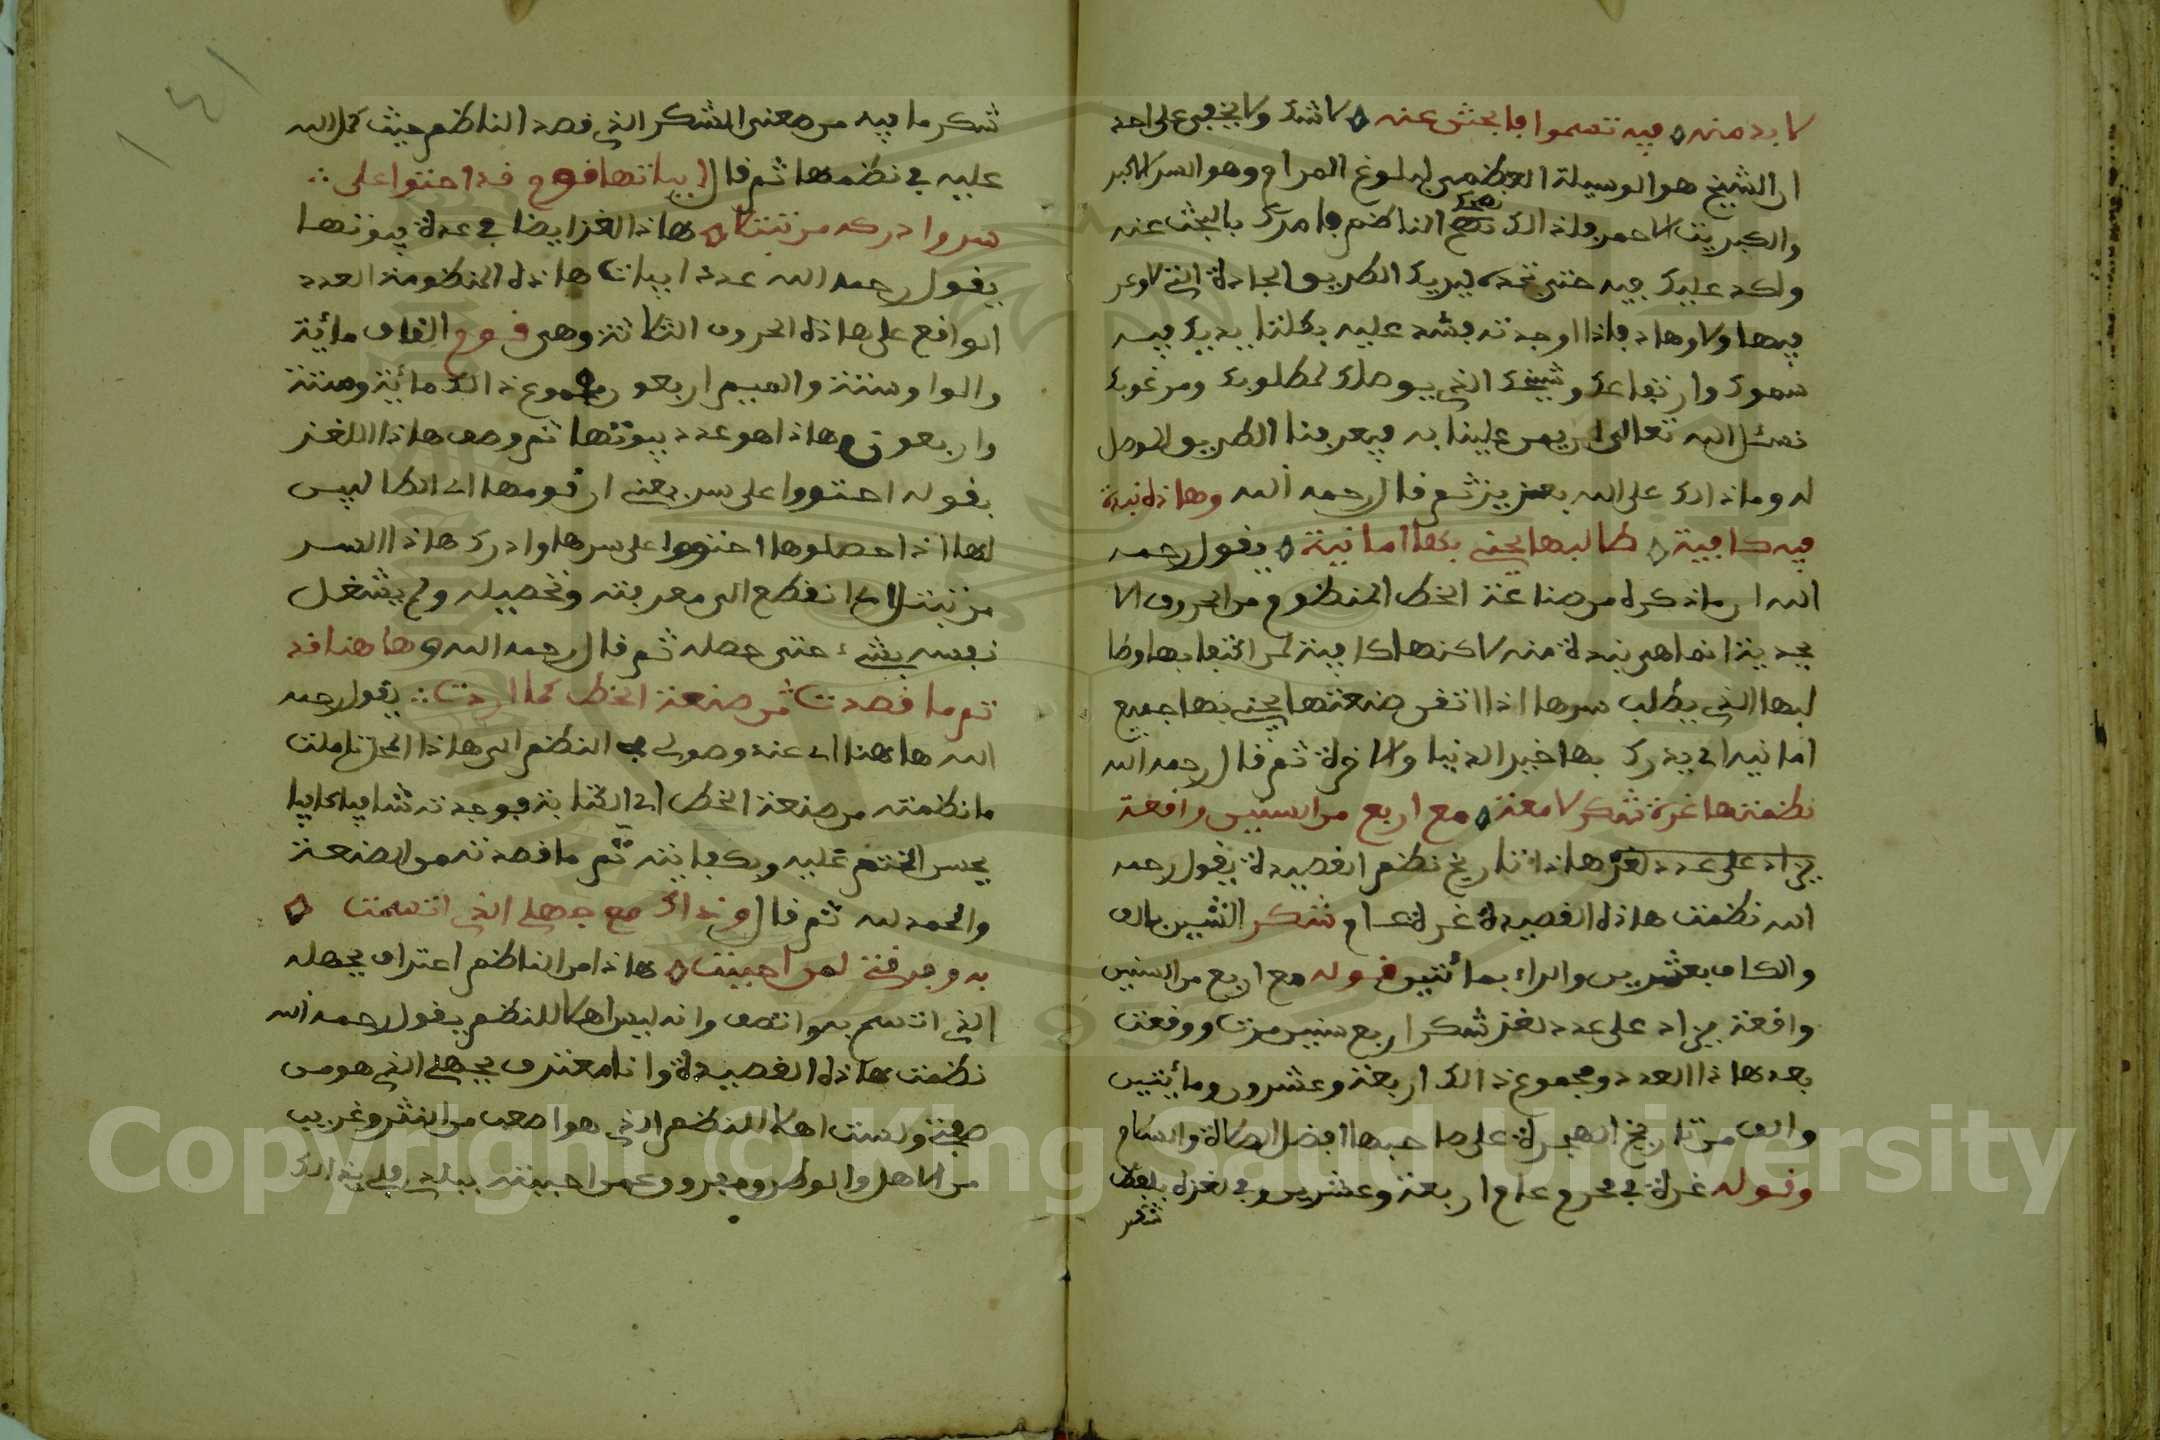 لا بد منه فيه تعلموا فابحث عنه لا شك ولا يخفى على احد
ان الشيخ هو الوسيلة العظمى لبلوغ المرام وهو السر الاكبر
والكبريت الاحمر فلذالك نصحك الناظم فامرك بالبحث عنه
واكد عليك فيه حتى تجده ليريك الطريق الجادة التي لا وعر
فيها ولا وهاد فاذا اوجدته فشد عليه بكلتا يديك فيه
سموك وارتفاعك وشيخك الذي يوصلك لمطلوبك ومرغوبك
نسئل الله تعالى ان يمن علينا به فيعرفنا الطريق الموصل
له وما ذالك على الله بعزيز ثم قال رحمه الله وهاذه نبذة
فيه كافية طالبها يجني بها امانيه يقول رحمه
الله ان ما ذكره من صناعة الخط المنظوم من الحروف الا
بجدية انما هي نبذة منه لاكنها كافية لمن اكتفا بها وطا
لبها الذي يطلب سرها اذا اتقن صنعتها يجني بها جميع
امانيه اي يدرك بها خير الدنيا والاخرة ثم قال رحمه الله
نظمتها غرة شكر لامعة مع اربع من السنين واقعة
يزاد على عدد لغز هاذا تاريخ نظم القصيدة يقول رحمه
الله نظمت هاذه القصيدة غرة عام شكر الشين بالف
والكاف بعشرين والراء بمائتين قوله مع اربع من السنين
واقعة يزاد على عدد لغز شكر اربع سنين مرت ووقعت
بعد هاذا العدد ومجموع ذالك اربعة وعشرون ومائتين
والف من تاريخ الهجرة على صاحبها افضل الصلاة والسلام
وقوله غرة في محرم عام اربعة وعشرين وفي لغزه بلفظ
شكر
شكر ما فيه من معنى الشكر الذي قصد الناظم حيث كمل الله
عليه في نظمها ثم قال ابياتها قوم قد احتوا على
سر وادركه من تبتلا هاذا لغز ايضا في عدة بيوتها
يقول رحمه الله عدة ابيات هاذه المنظومة العدد
الواقع على هاذه الحروف الثلاثة وهي قوم القاف مائة
والواو ستة والميم اربعون ومجموع ذالك مائة وستة
واربعون وهاذا هو عدد بيوتها ثم وصف هاذا اللغز
بقوله احتووا على سر يعني ان قومها اي الطالبين
لها اذا حصلوها احتووا على سرها وادرك هاذا السر
من تبتل اي انقطع الى معرفته وتحصيله ولم يشغل
نفسه بشيء حتى حصله ثم قال رحمه الله وها هنا قد
تم ما قصدت من صنعة الخط كما اردت يقول رحمه
الله ها هنا اي عند وصولي في النظم الى هاذا المحل تاملت
ما نظمته من صنعة الخط اي الكتابة فوجدته شافيا كافيا
يحسن الختم عليه وبكفايته تم ما قصدته من الصنعة
والحمد لله ثم قال وذاك مع جهلي الذي اتسمت
به وفرقة لمن احببت هاذا من الناظم اعتراف بجهله
الذي اتسم به واتصف وانه ليس اهلا للنظم يقول رحمه الله
نظمت هاذه القصيدة وانا معترف بجهلي الذي هو من
صفتي ولست اهلا للنظم الذي هو اصعب من النثر وغريب
من الاهل والوطن ومفروق عمن احببته ببلدي فلي بذالك
١٤١
Copyright © King Saud University